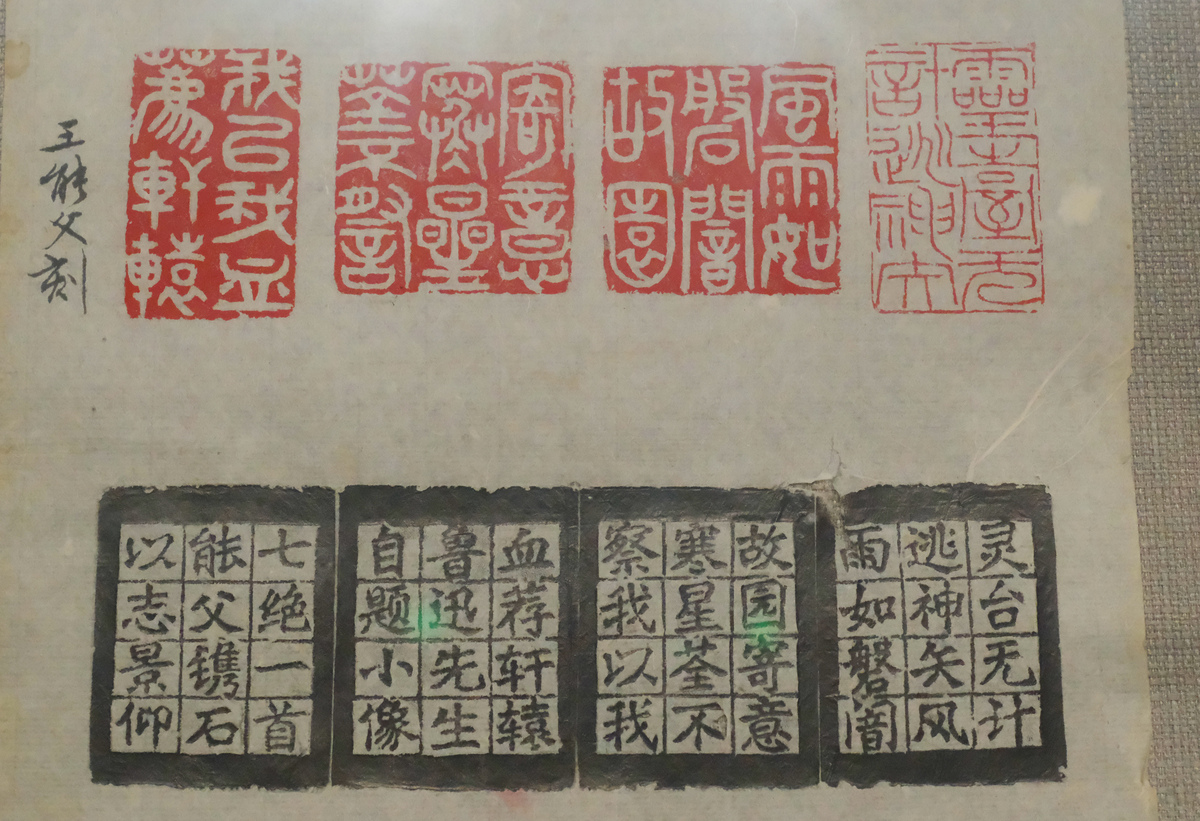 靈臺无
計逃神矢
風雨如
磐闇
故園
寄意
寒星
荃不察
我㠯我血
薦軒轅
王能父刻
灵台无计
逃神矢风
雨如磐闇
故园寄意
寒星荃不
察我以我
血荐轩辕
鲁迅先生
自题小像
七绝一首
能父镌石
以志景仰